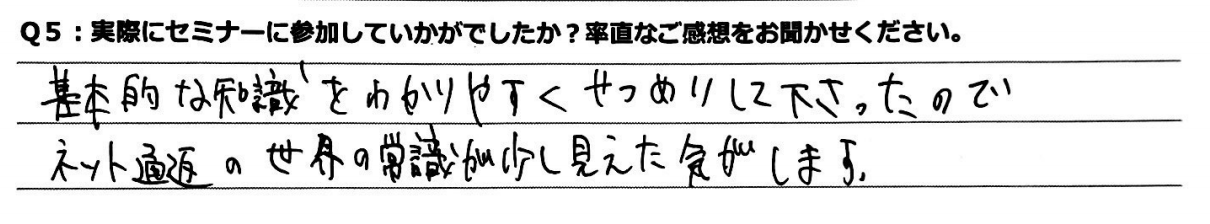 Q5：実際にセミナーに参加していかがでしたか？率直なご感想をお聞かせください。
基本的な知識をわかりやすくせつめりして下さったので
ネット通販の世界の常識が少し見えた気がします。